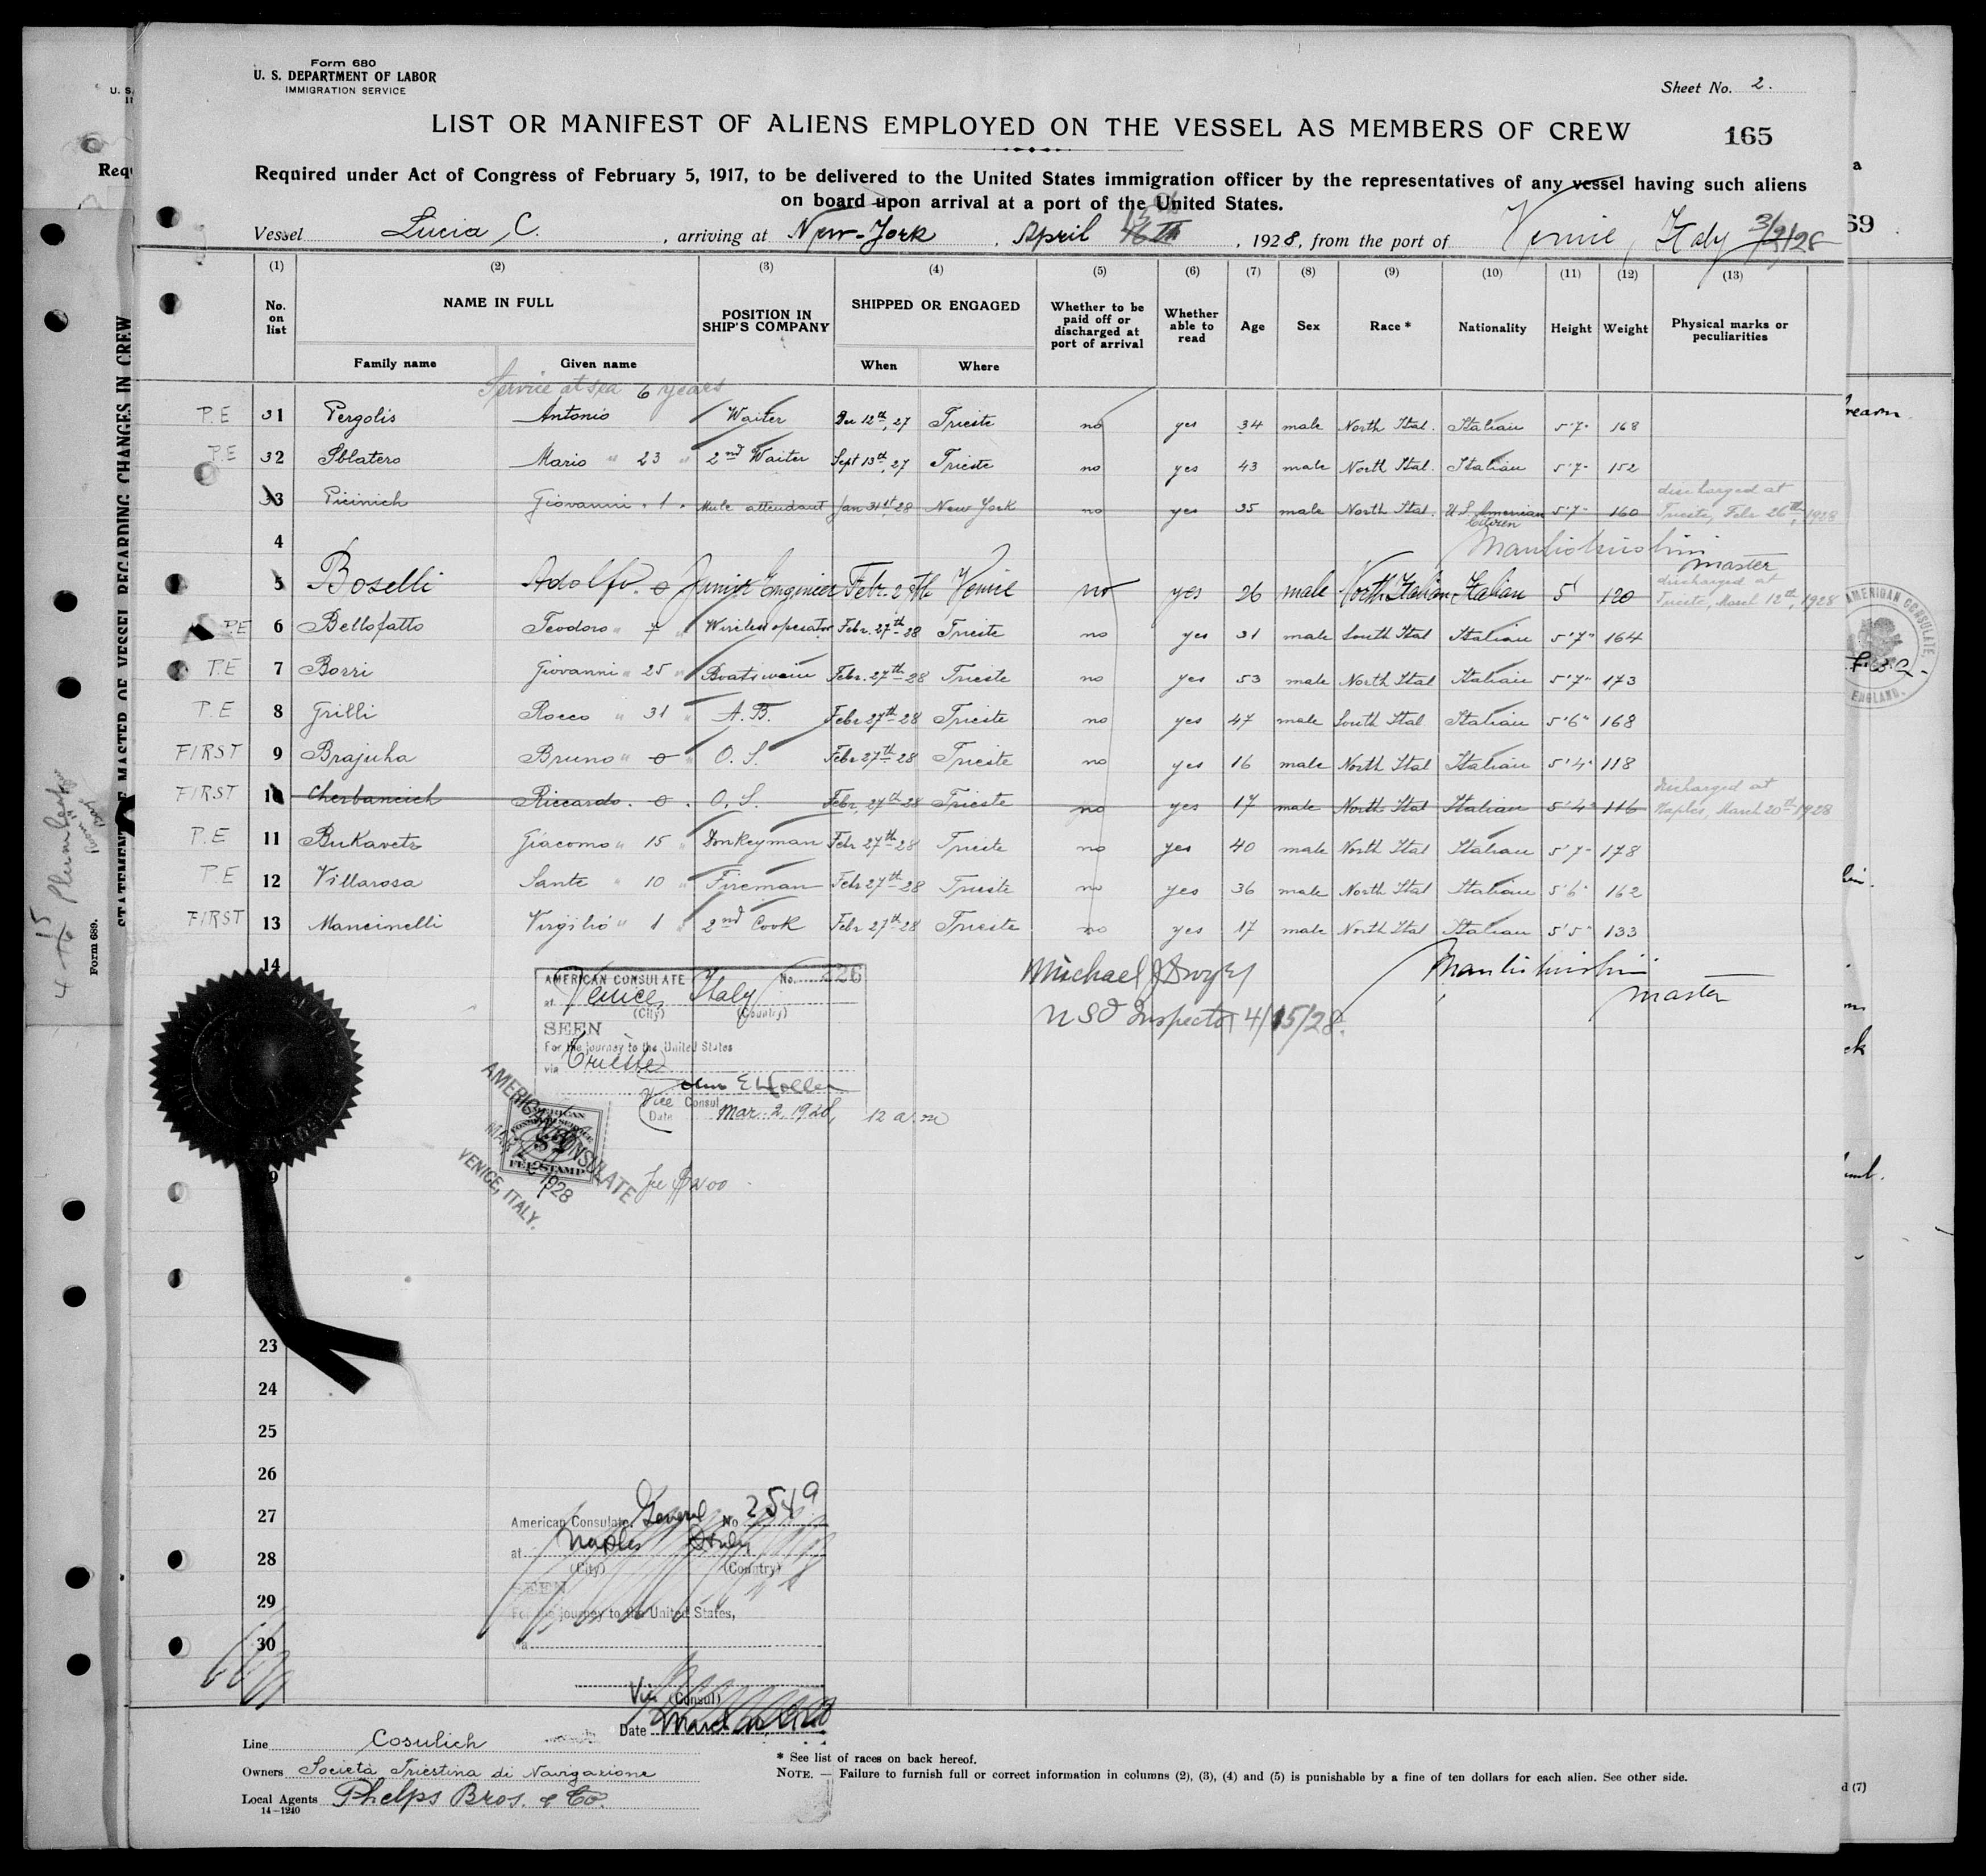 Form 680
U. S. DEPARTMENT OF LABOR
IMMIGRATION SERVICE
Sheet No. 2.
LIST OR MANIFEST OF ALIENS EMPLOYED ON THE VESSEL AS MEMBERS OF CREW
165
Required under Act of Congress of February 5, 1917, to be delivered to the United States immigration officer by the representatives of any vessel having such aliens
on board upon arrival at a port of the United States.
Vessel Lucia C. , arriving at New-York , April 15th 16th , 1928, from the port of Venice, Italy 3/2/28
(1) (2) (3) (4) (5) (6) (7) (8) (9) (10) (11) (12) (13)
No. on list NAME IN FULL POSITION IN SHIP'S COMPANY SHIPPED OR ENGAGED Whether to be paid off or discharged at port of arrival Whether able to read Age Sex Race * Nationality Height Weight Physical marks or peculiarities
Family name Given name When Where
Service at sea 6 years
P.E 31 Pergolis Antonio Waiter Dec 12th, 27 Trieste no yes 34 male North Ital. Italian 5'7" 168
P.E 32 Sblatero Mario " 23 " 2nd Waiter Sept 13th, 27 Trieste no yes 43 male North Ital. Italian 5'7" 152
33 Picinich Giovanni " 1 " Mule attendant Jan 31st 28 New York no yes 35 male North Ital. U.S. American Citizen 5'7" 160 discharged at Trieste, Febr 26th, 1928
4 master
5 Boselli Adolfo. o Junior Engineer Febr. 28th Venice no yes 26 male North Italian Italian 5' 120 discharged at Trieste, March 12th, 1928
P.E 6 Bellofatto Teodoro " 7 " Wireless operator Febr. 27th 28 Trieste no yes 31 male South Ital Italian 5'7" 164
P.E 7 Borri Giovanni " 25 " Boatswain Febr. 27th 28 Trieste no yes 53 male North Ital Italian 5'7" 173
P.E 8 Grilli Rocco " 31 " A. B. Febr 27th 28 Trieste no yes 47 male South Ital Italian 5'6" 168
FIRST 9 Brajuha Bruno " o " O. S. Febr 27th 28 Trieste no yes 16 male North Ital Italian 5'4" 118
FIRST 10 Cherbancich Riccardo. o . O. S. Febr, 27th 28 Trieste no yes 17 male North Ital Italian 5'4" 116 discharged at Naples, March 20th 1928
P.E 11 Bukavetz Giacomo " 15 " Donkeyman Febr 27th 28 Trieste no yes 40 male North Ital Italian 5'7" 178
P.E 12 Villarosa Sante " 10 " Fireman Febr 27th 28 Trieste no yes 36 male North Ital Italian 5'6" 162
FIRST 13 Mancinelli Virgilio " 1 " 2nd Cook Febr 27th 28 Trieste no yes 17 male North Ital Italian 5'5" 133
14
Michael J Dwyer
master
Inspector 4/15/28.
AMERICAN CONSULATE No. 226
at Venice, Italy
(City) (Country)
SEEN
For the journey to the United States
via Trieste
Vice Consul
Date Mar. 2, 1928, 12 a.m
AMERICAN CONSULAR SERVICE
FEE STAMP
AMERICAN CONSULATE
MAR 2 1928
VENICE, ITALY.
fee $2.00
23
24
25
26
27
28
29
30
American Consulate General No 2549
at Naples Italy
(City) (Country)
SEEN
For the journey to the United States,
via
Vice (Consul)
Date March 20, 1928
Line Cosulich
Owners Società Triestina di Navigazione
Local Agents Phelps Bros. & Co.
14-1240
* See list of races on back hereof.
NOTE. — Failure to furnish full or correct information in columns (2), (3), (4) and (5) is punishable by a fine of ten dollars for each alien. See other side.
STATEMENT OF MASTER OF VESSEL REGARDING CHANGES IN CREW
Form 689.
AMERICAN CONSULATE,
ENGLAND.
69
d (7)